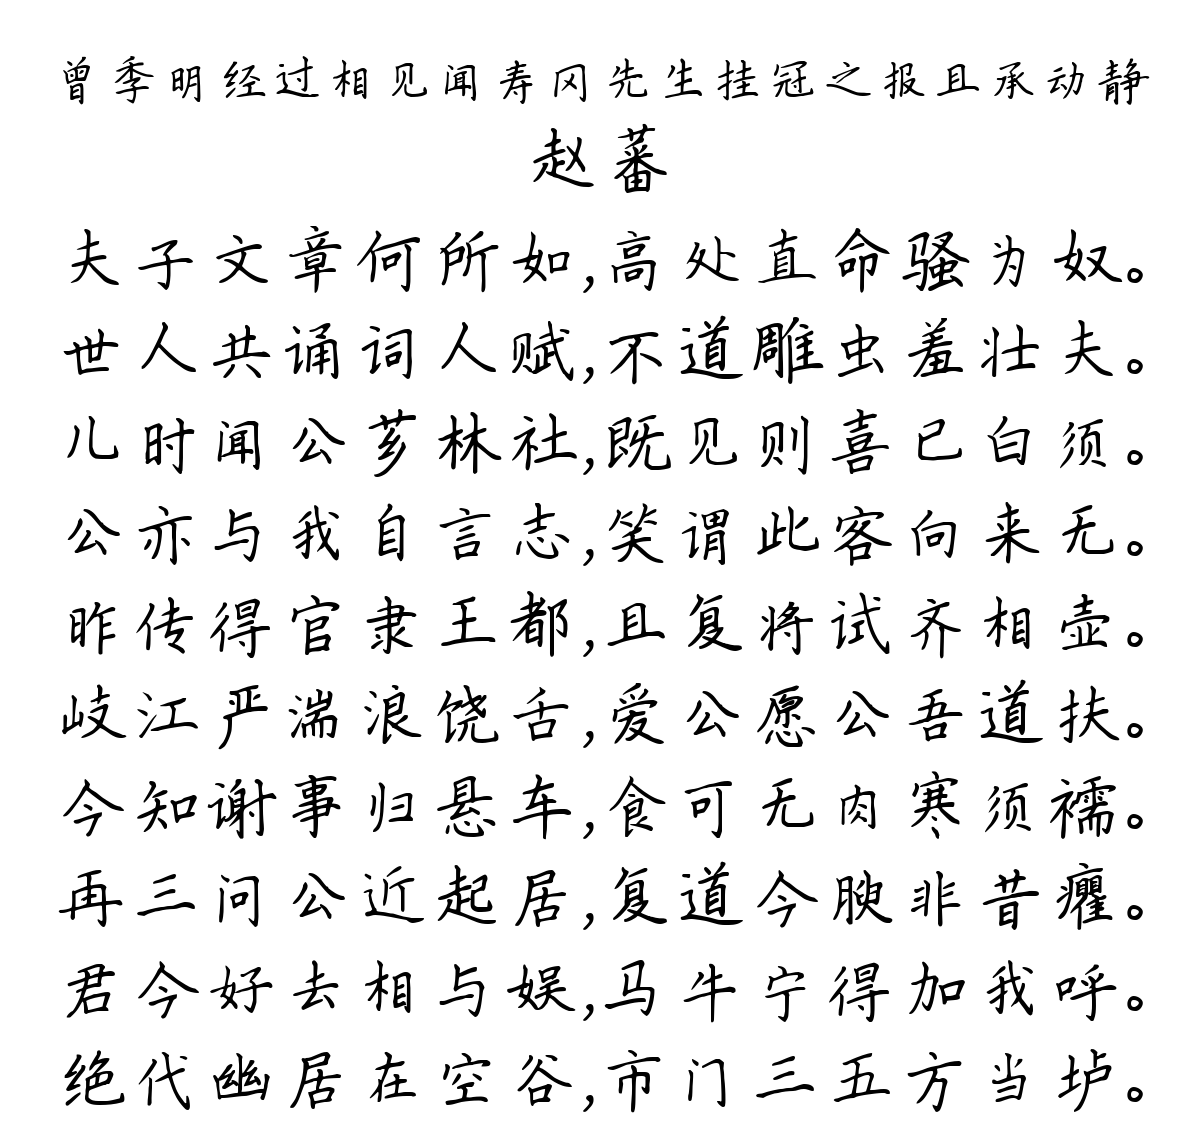 曾季明经过相见闻寿冈先生挂冠之报且承动静
赵蕃
夫子文章何所如,高处直命骚为奴。
世人共诵词人赋,不道雕虫羞壮夫。
儿时闻公芗林社,既见则喜已白须。
公亦与我自言志,笑谓此客向来无。
昨传得官隶王都,且复将试齐相壶。
岐江严湍浪饶舌,爱公愿公吾道扶。
今知谢事归悬车,食可无肉寒须襦。
再三问公近起居,复道今腴非昔癯。
君今好去相与娱,马牛宁得加我呼。
绝代幽居在空谷,市门三五方当垆。